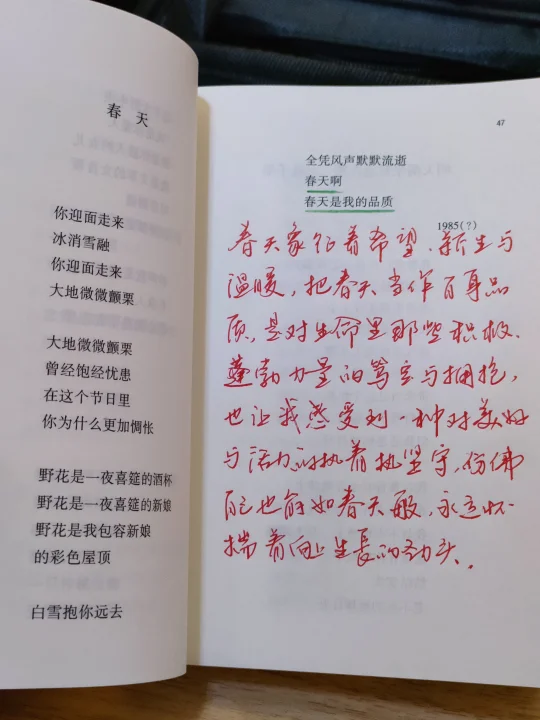 春天
你迎面走来
冰消雪融
你迎面走来
大地微微颤栗
大地微微颤栗
曾经饱经忧患
在这个节日里
你为什么更加惆怅
野花是一夜喜筵的酒杯
野花是一夜喜筵的新娘
野花是我包容新娘
的彩色屋顶
白雪抱你远去
47
全凭风声默默流逝
春天啊
春天是我的品质
1985(?)
春天象征着希望、新生与
温暖，把春天当作自身品
质，是对生命里那些积极、
蓬勃力量的笃定与拥抱，
也让我感受到一种对美好
与活力的执着执坚守，仿佛
自己也能如春天般，永远怀
揣着向上生長的劲头。